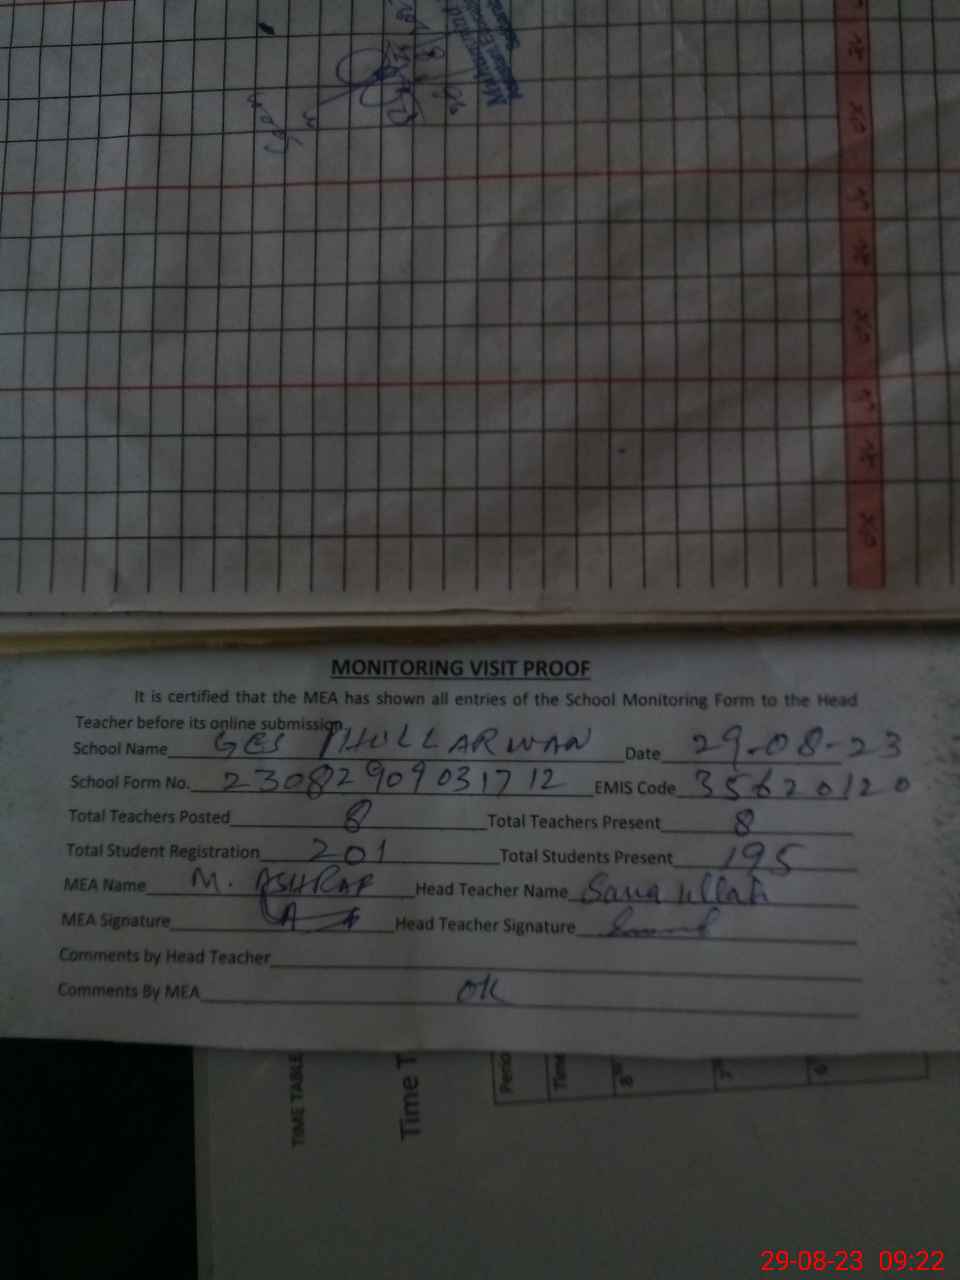 MONITORING VISIT PROOF
It is certified that the MEA has shown all entries of the School Monitoring Form to the Head
Teacher before its online submission.
School Name GES PHULLARWAN Date 29-08-23
School Form No. 23082909031712 EMIS Code 35620120
Total Teachers Posted 8 Total Teachers Present 8
Total Student Registration 201 Total Students Present 195
MEA Name M. ASHRAF Head Teacher Name Sana ullah
MEA Signature Head Teacher Signature
Comments by Head Teacher
Comments By MEA OK
TIME TABLE
Time T
Perio
Time
8th
7th
6th
29-08-23 09:22